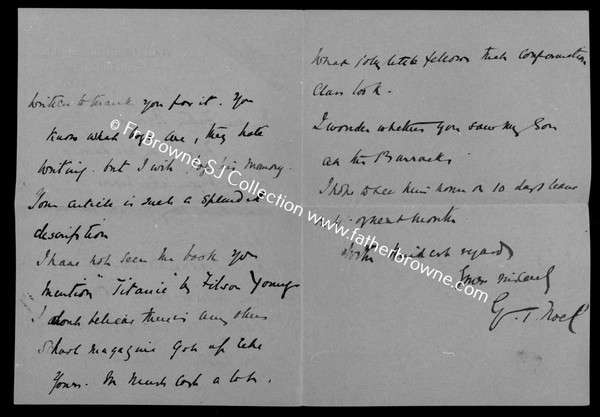 written to thank you for it. You
know what boys are, they hate
writing. but I wish his memory.
Your article is such a splendid
description
I have not seen the book you
mention "Titanic" by Filson Young
I don't believe there is any other
School magazine got up like
Yours. It must cost a lot.
What jolly little fellows that confirmation
Class look.
I wonder whether you saw my Son
at the Barracks
I hope to see him home on 10 days leave
next month
With kindest regards
Yours sincerely
G. J. Noel
© Fr Browne S.J Collection www.fatherbrowne.com